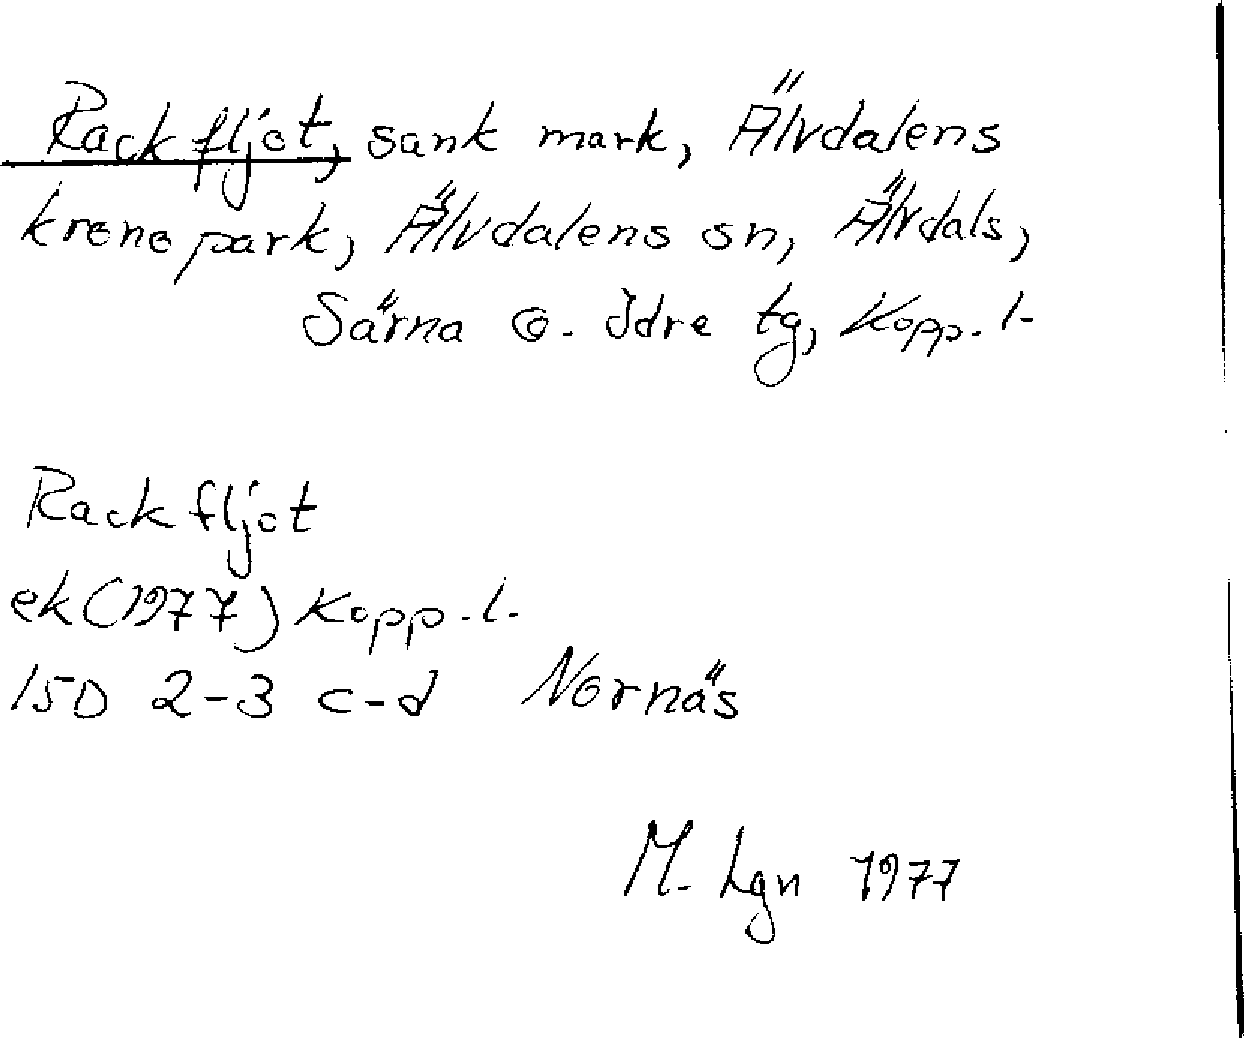 Rackfljot, sank mark, Älvdalens
kronopark, Älvdalens sn, Älvdals,
Särna o. Idre tg, Kopp. l.
Rackfljot
ek (1977) Kopp. l.
15D 2-3 c-d Nornäs
M. Lgn 1977